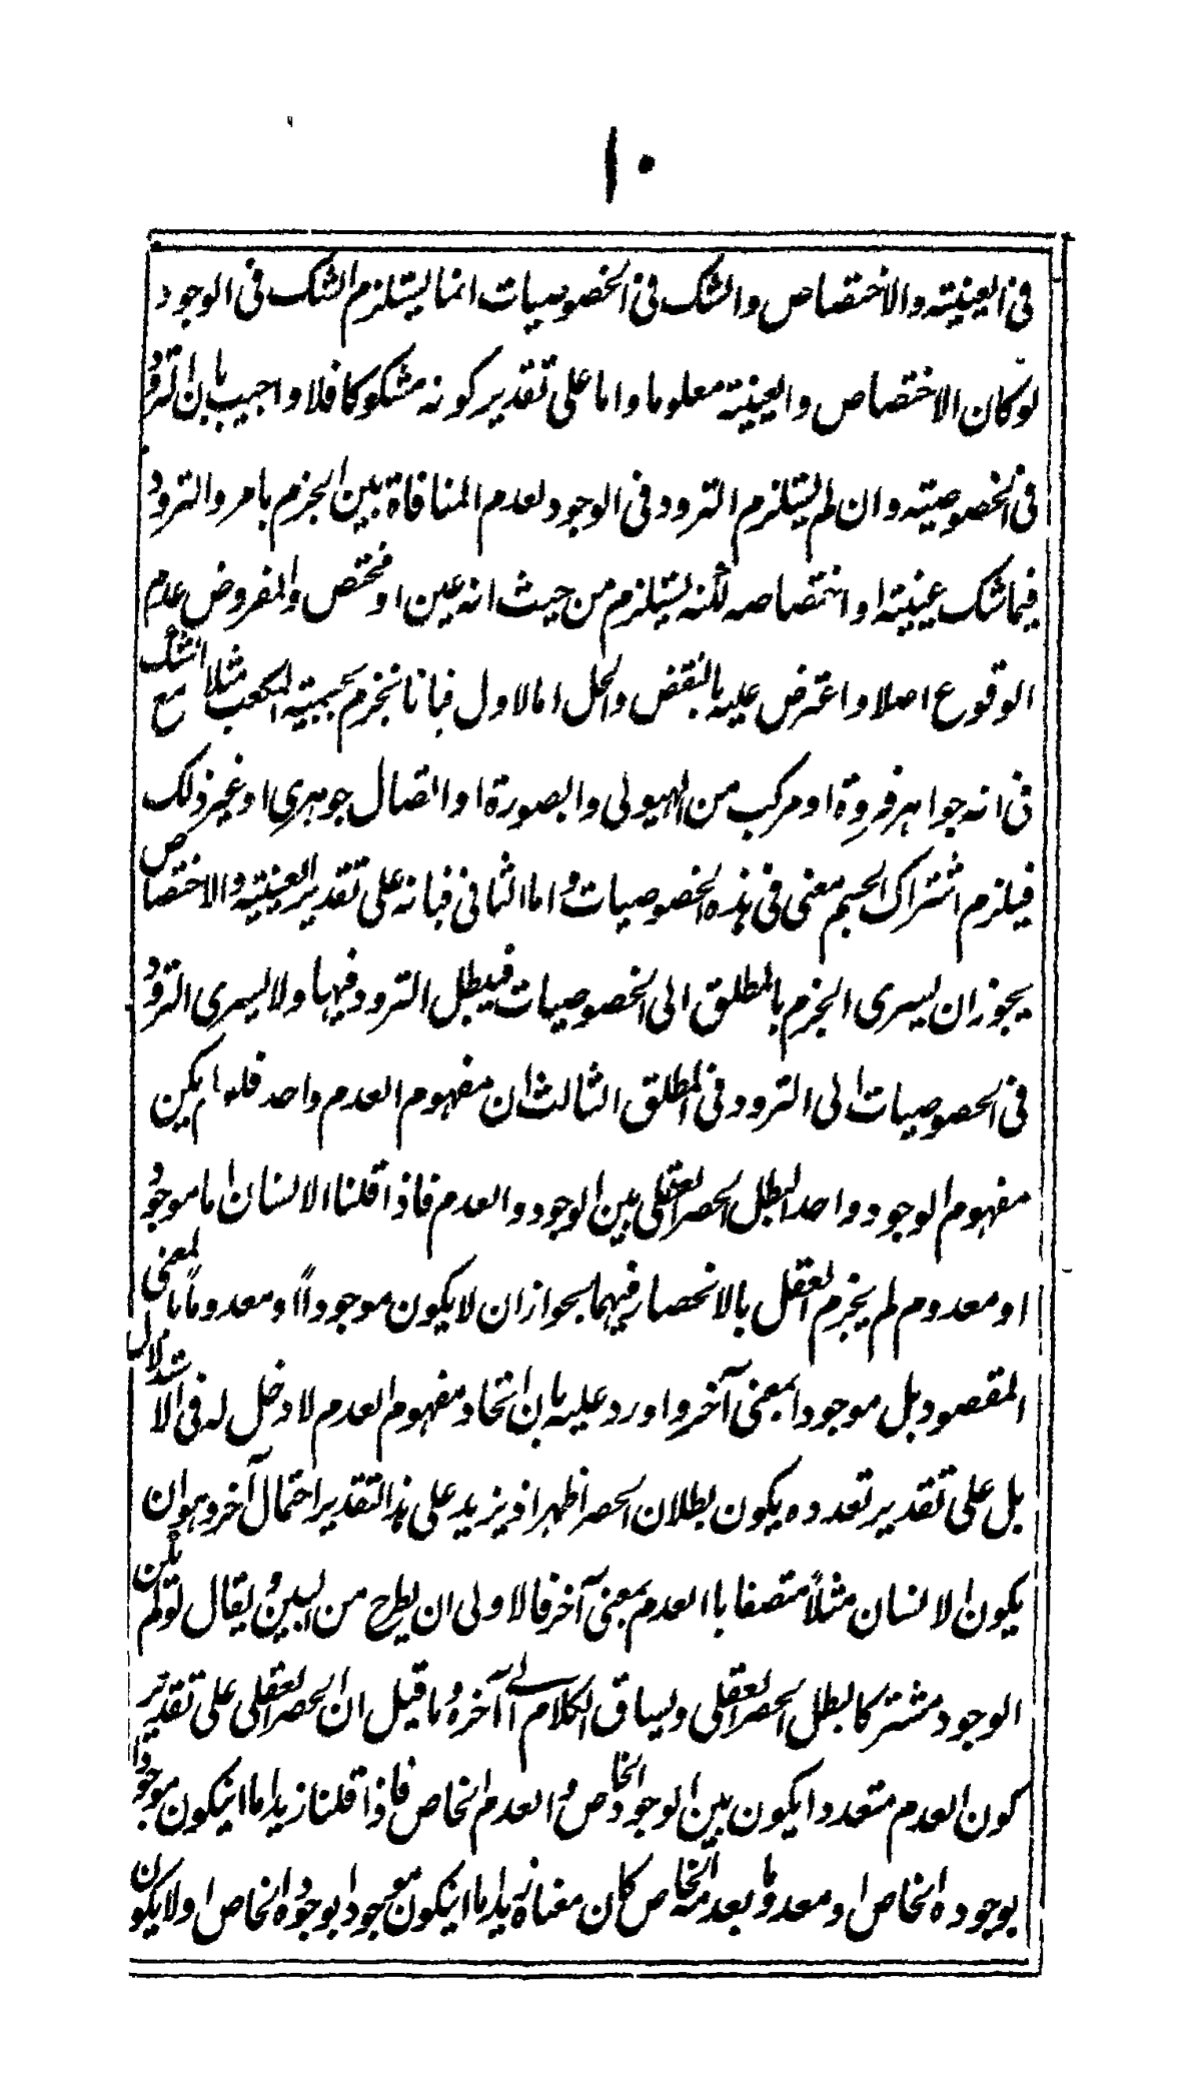 ١٠
فی العینیته والاختصاص والشک فی الخصوصیات انما یستلزم الشک فی الوجود
لو کان الاختصاص والعینیته معلوما واما علی تقدیر کونه مشکوکا فلا واجیب بان التردد
فی الخصوصیته وان لم یستلزم التردد فی الوجود لعدم المنافاة بین الجزم بامر والتردد
فیما شک عینیته او اختصاصه لکنه یستلزم من حیث انه عین او مختص والمفروض عدم
الوقوع اصلا واعترض علیه بالنقض والحل اما الاول فبانا نجزم بجسمیته المکعب مثلا مع الشک
فی انه جواهر فردة او مرکب من الهیولی والصورة او اتصال جوهری او غیر ذلک
فیلزم اشتراک الجسم معنی فی هذه الخصوصیات واما الثانی فبانه علی تقدیر العینیته والاختصاص
یجوز ان یسری الجزم بالمطلق الی الخصوصیات فیبطل التردد فیها ولا یسری التردد
فی الخصوصیات الی التردد فی المطلق الثالث ان مفهوم العدم واحد فلو لم یکن
مفهوم الوجود واحدا لبطل الحصر العقلی بین الوجود والعدم فاذا قلنا الانسان اما موجود
او معدوم لم یجزم العقل بالانحصار فیهما بجواز ان لا یکون موجوداً او معدوماً بالمعنی
المقصود بل موجودا بمعنی آخر واورد علیه بان اتحاد مفهوم العدم لا دخل له فی الاستدلال
بل علی تقدیر تعدده یکون بطلان الحصر اظهر اذ یزید علی هذا التقدیر احتمال آخر وهو ان
یکون الانسان مثلاً متصفا باالعدم بمعنی آخر فالاولی ان یطرح من البین و یقال لو لم یکن
الوجود مشترکا لبطل الحصر العقلی ویساق الکلام الی آخره وما قیل ان الحصر العقلی علی تقدیر
کون العدم متعددا یکون بین الوجود الخاص والعدم الخاص فاذا قلنا زید اما اینکون موجودا
بوجوده الخاص او معدوما بعدمه الخاص کان معناه زید اما اینکون موجودا بوجوده الخاص او لا یکون